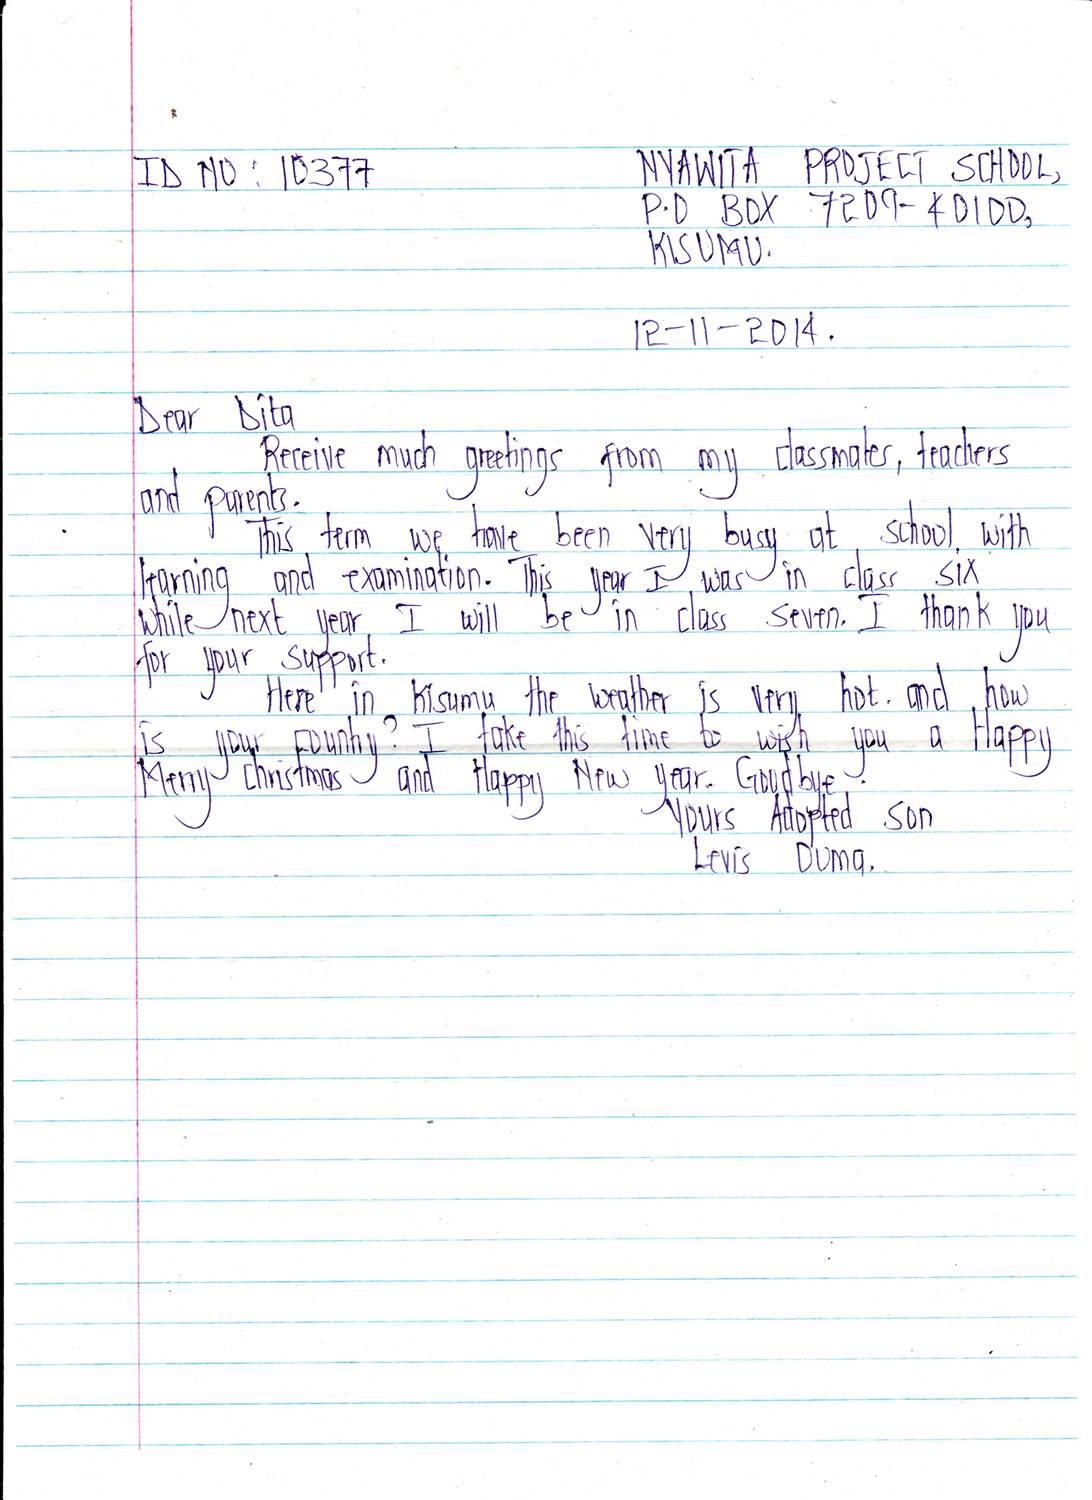 ID NO: 10377
NYAWITA PROJECT SCHOOL,
P.O BOX 7209-40100,
KISUMU.
12-11-2014.
Dear Dita
Receive much greetings from my classmates, teachers
and parents.
This term we have been very busy at school with
learning and examination. This year I was in class six
while next year I will be in class seven. I thank you
for your support.
Here in Kisumu the weather is very hot. and how
is your country? I take this time to wish you a Happy
Merry christmas and Happy New year. Goodbye.
Yours Adopted son
Levis Ouma.